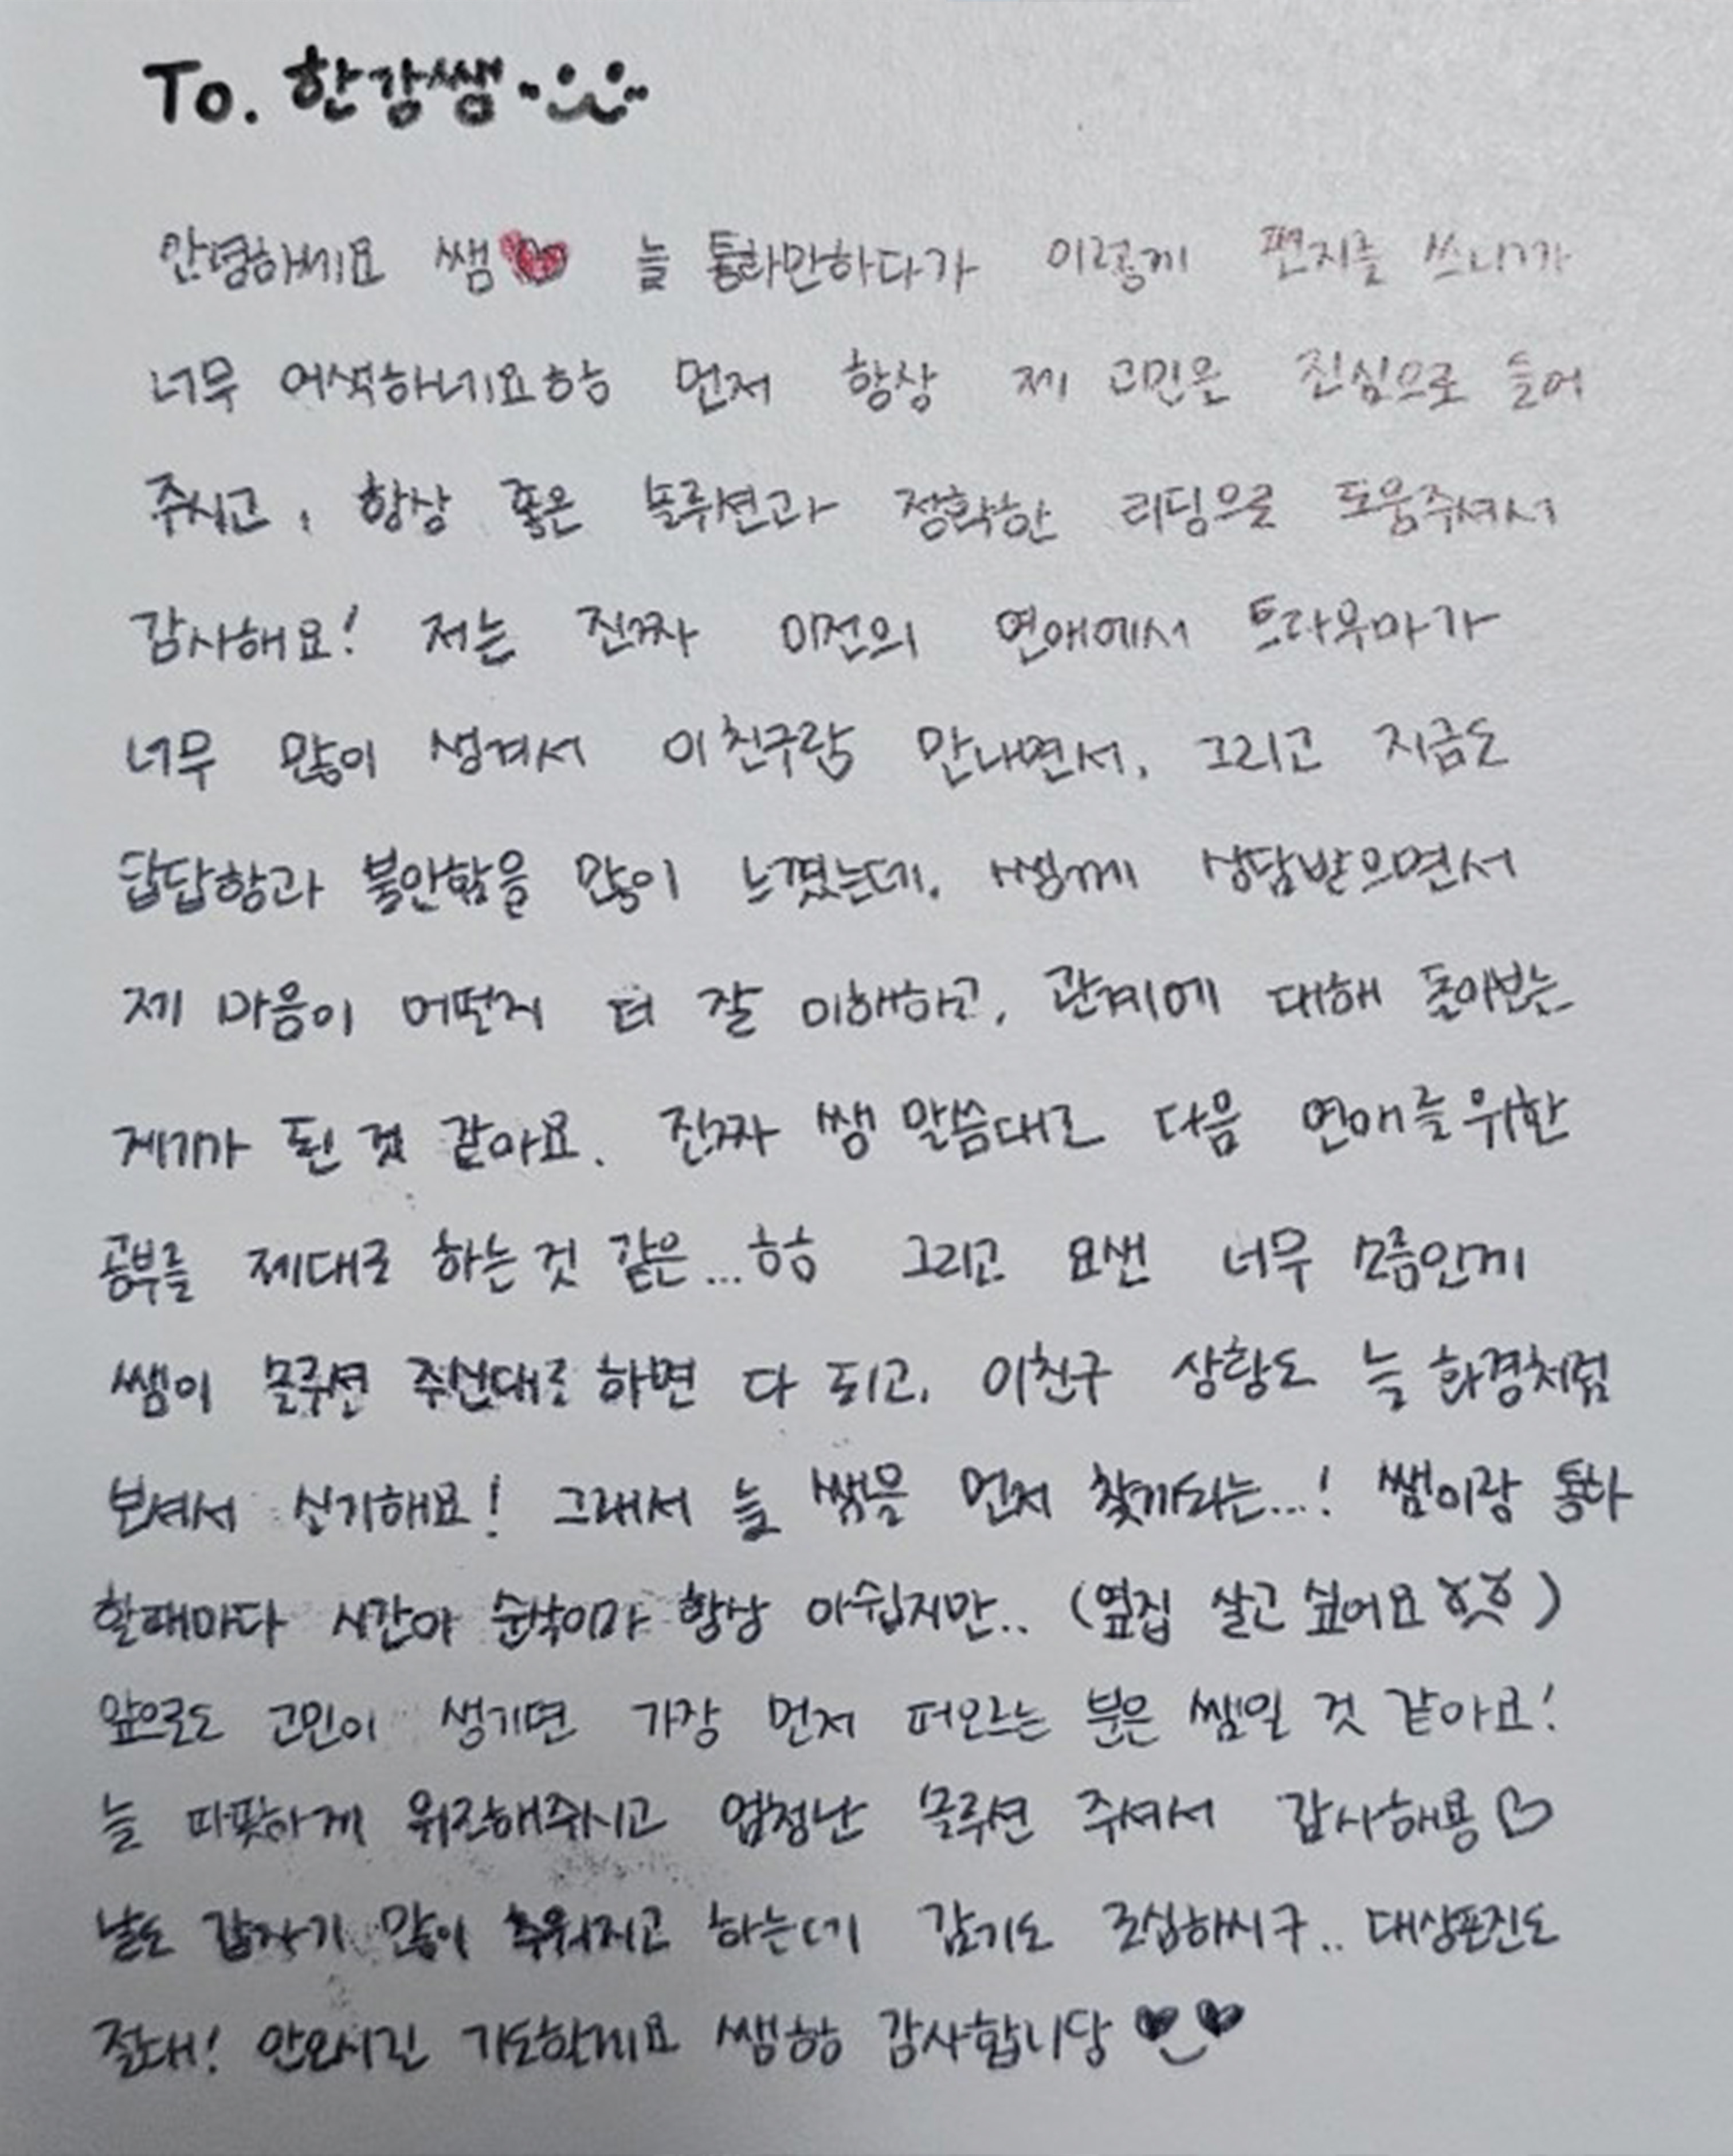 To. 한강쌤
안녕하세요 쌤 늘 통화만하다가 이렇게 편지를 쓰니까
너무 어색하네요ㅎㅎ 먼저 항상 제 고민을 진심으로 들어
주시고, 항상 좋은 솔루션과 정확한 리딩으로 도움주셔서
감사해요! 저는 진짜 이전의 연애에서 트라우마가
너무 많이 생겨서 이친구랑 만나면서, 그리고 지금도
답답함과 불안함을 많이 느꼈는데, 쌤께 상담받으면서
제 마음이 어떤지 더 잘 이해하고, 관계에 대해 돌아보는
계기가 된 것 같아요. 진짜 쌤 말씀대로 다음 연애를 위한
공부를 제대로 하는것 같은...ㅎㅎ 그리고 요샌 너무 소름인게
쌤이 솔루션 주신대로 하면 다 되고, 이친구 상황도 늘 화경처럼
보셔서 신기해요! 그래서 늘 쌤을 먼저 찾게되는...! 쌤이랑 통화
할때마다 시간이 순삭이라 항상 아쉽지만.. (옆집 살고 싶어요 ㅠㅠ)
앞으로도 고민이 생기면 가장 먼저 떠오르는 분은 쌤일 것 같아요!
늘 따뜻하게 위로해주시고 엄청난 솔루션 주셔서 감사해용♡
날도 갑자기 많이 추워지고 하는데 감기도 조심하시구.. 대상포진도
절대! 안오시길 기도할게요 쌤ㅎㅎ 감사합니당